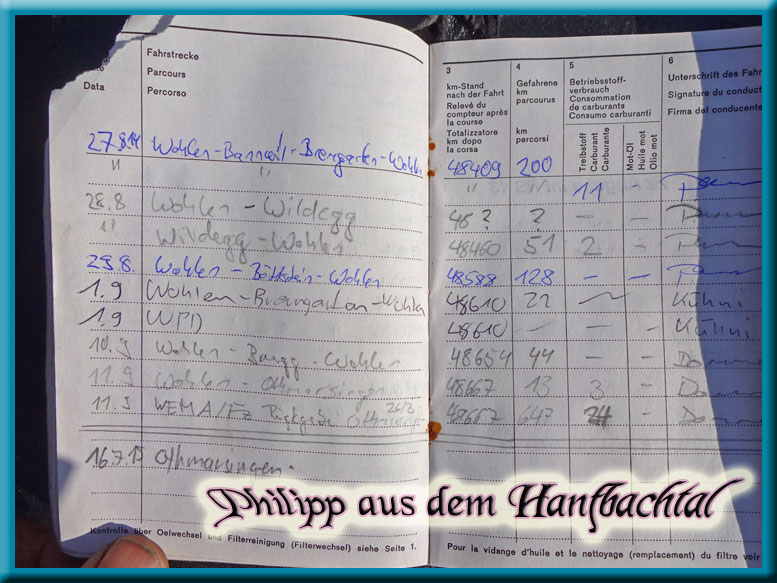 Data
Fahrstrecke
Parcours
Percorso
3
km-Stand
nach der Fahrt
Relevé du
compteur après
la course
Totalizzatore
km dopo
la corsa
4
Gefahrene
km
parcourus
km
percorsi
5
Betriebsstoff-
verbrauch
Consommation
de carburants
Consumo carburanti
Treibstoff
Carburant
Carburante
Mot-Öl
Huile mot
Olio mot
6
Unterschrift des Fahr
Signature du conduct
Firma del conducente
27.8.14 Wohlen - - Bremgarten - Wohlen 48409 200
" " " " 11 -
28.8 Wohlen - Wildegg 48 ? ? - -
" Wildegg - Wohlen 48460 51 2 -
29.8. Wohlen - Böttstein - Wohlen 48588 128 - -
1.9 Wohlen - Bremgarten - Wohlen 48610 22 Kühni
1.9 WPD 48610 - - Kühni
10.9 Wohlen - Brugg - Wohlen 48654 44 - -
11.9 Wohlen - Othmarsingen 48667 13 3 -
11.9 WEMA/Fz 48667 647 -
16.7.15 Othmarsingen.
Kontrolle über Oelwechsel und Filterreinigung (Filterwechsel) siehe Seite 1.
Pour la vidange d'huile et le nettoyage (remplacement) du filtre voir
Philipp aus dem Hanfbachtal